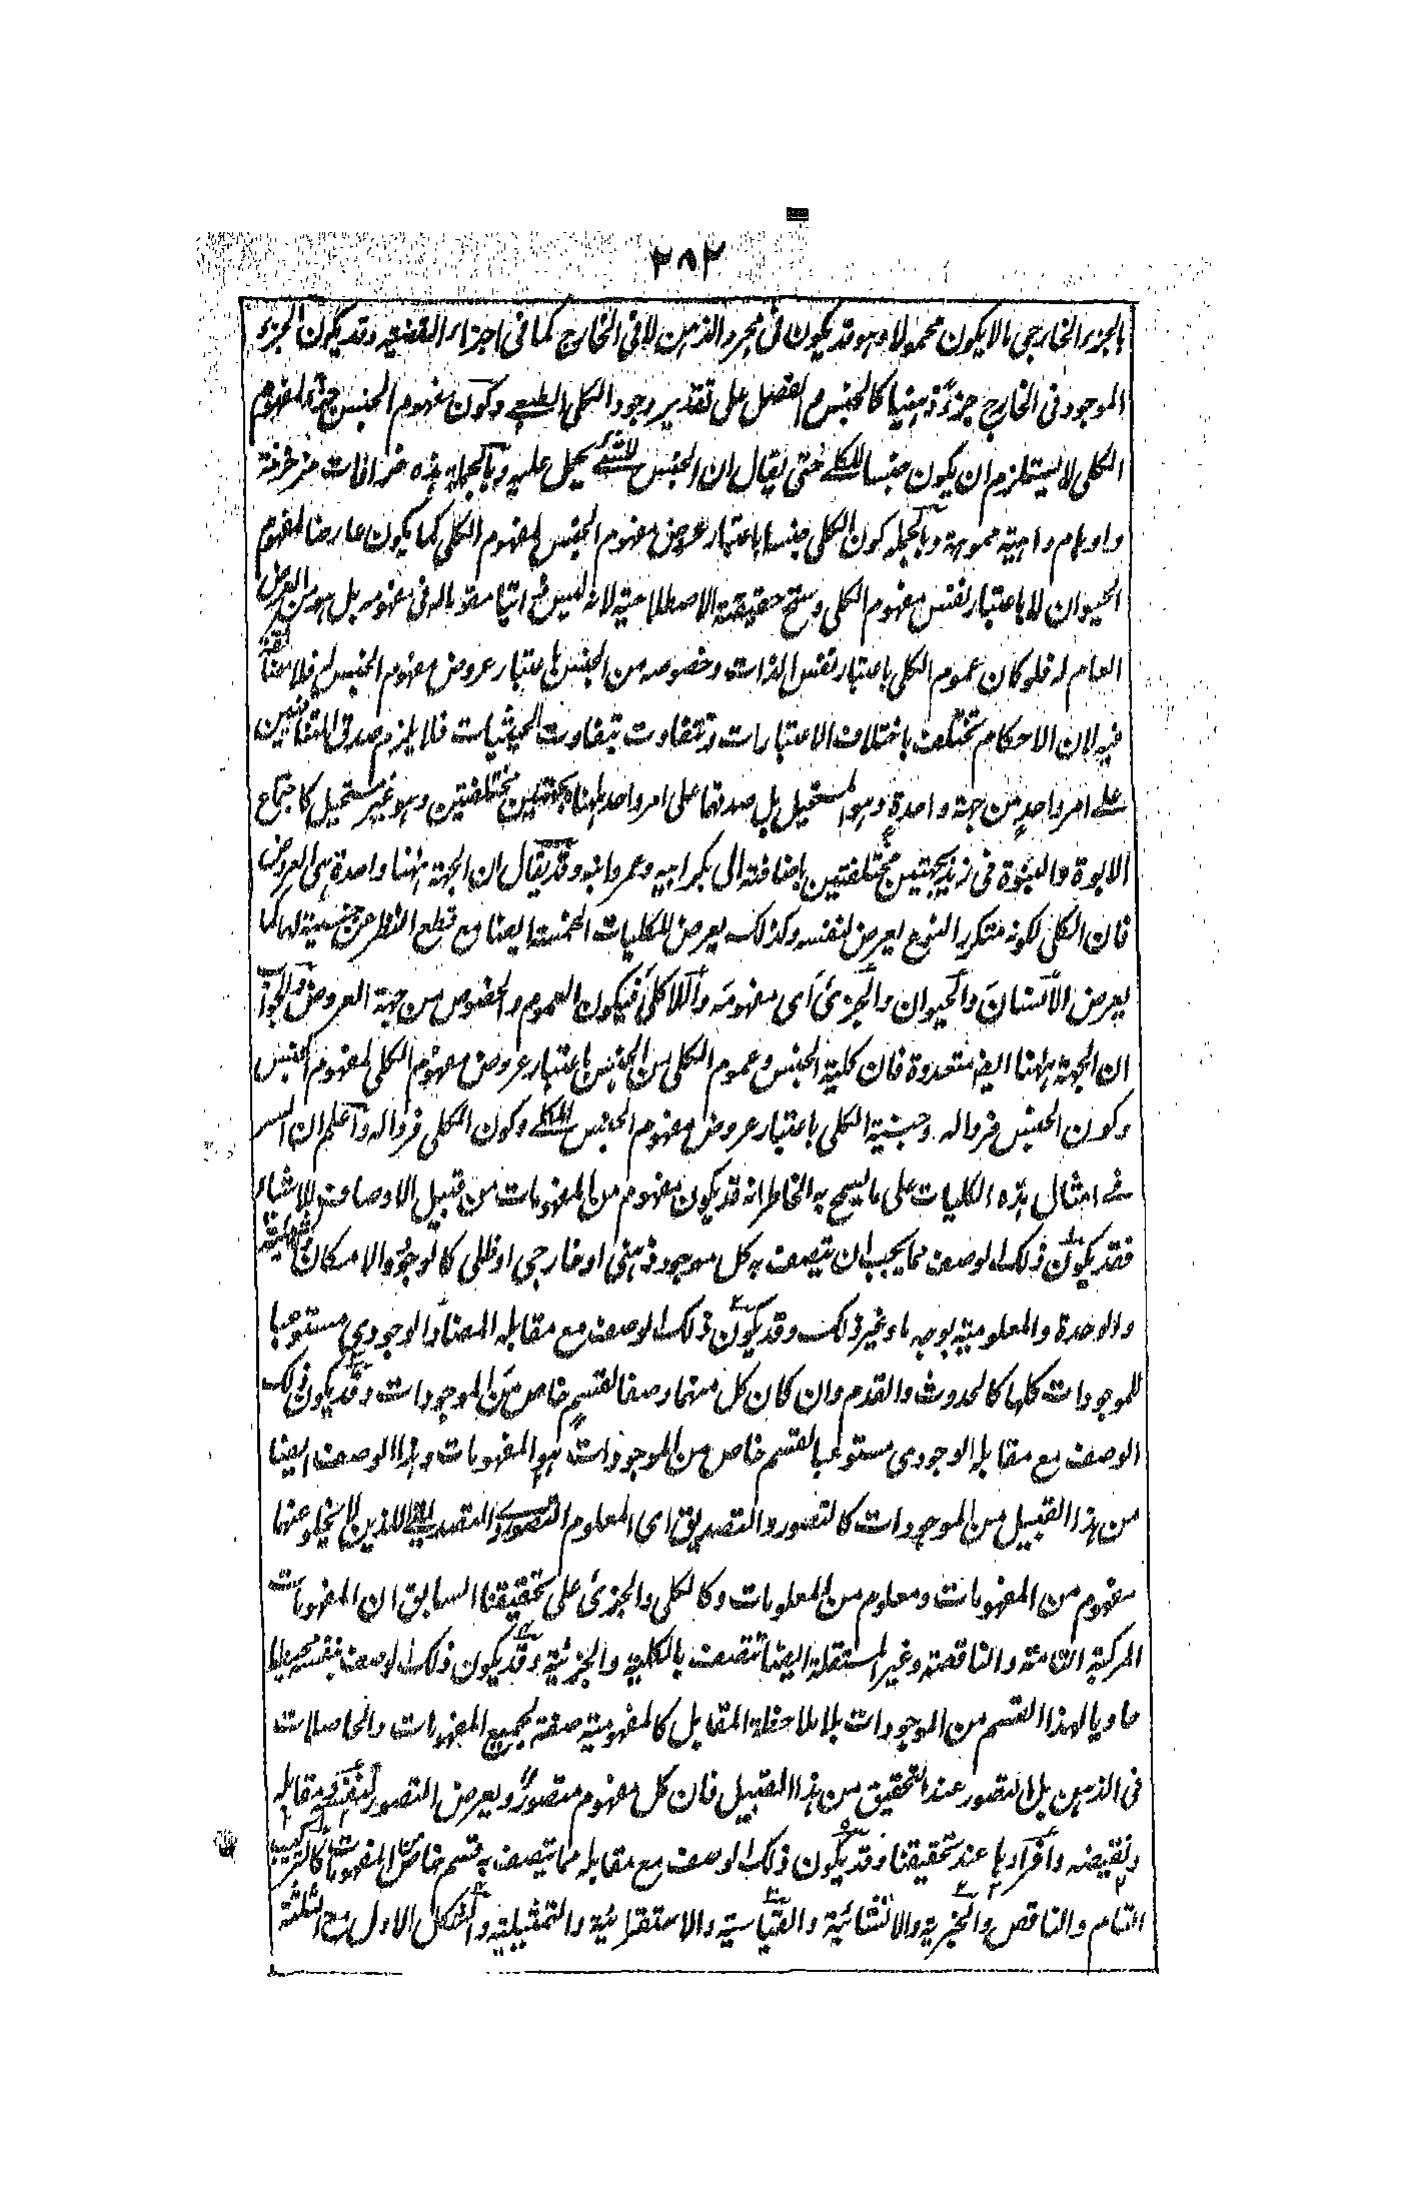 ٢٨٢
بالجزء الخارجي ما لا يكون محمولا وهو قد يكون في مجرد الذهن لا في الخارج كما في اجزاء القضية وقد يكون الجزء
الموجود في الخارج جزءً ذهنيا كالجنس والفصل على تقدير وجود الكلي الطبعي وكون مفهوم الجنس جزء لمفهوم
الكلي لا يستلزم ان يكون جنسا للكلي حتى يقال ان الجنس للشئ يحمل عليه وبالجملة هذه خرافات مزخرفة
واوهام واهية مموهة وبالجملة كون الكلي جنسا باعتبار عروض مفهوم الجنس لمفهوم الكلي كما يكون عارضا لمفهوم
الحيوان لا باعتبار نفس مفهوم الكلي وسنخ حقيقته الاصطلاحية لانه ليس ذاتيا مقوما له في مفهومه بل هو من العرض
العام له فلو كان عموم الكلي باعتبار نفس الذات وخصوصه من الجنس باعتبار عروض مفهوم الجنس له فلا مضائقة
فيه لان الاحكام تختلف باختلاف الاعتبارات وتتفاوت بتفاوت الحيثيات فلا يلزم صدق المتقابلين
على امر واحد من جهة واحدة وهو المستحيل بل صدقهما على امر واحد ههنا بجهتين مختلفتين وهو غير مستحيل كاجتماع
الابوة والبنوة في زيد بجهتين مختلفتين باضافته الى بكر ابيه وعمرو ابنه وقد يقال ان الجهة ههنا واحدة هي العروض
فان الكلي لكونه متكرر النوع يعرض لنفسه وكذلك يعرض للكليات الخمسة ايضا مع قطع النظر عن جنسيته لها كما
يعرض الانسان والحيوان والجزئ اى مفهومه واللاكلي فيكون العموم والخصوص من جهة العروض والجواب
ان الجهة ههنا ايضا متعددة فان كلية الجنس وعموم الكلي من الجنس باعتبار عروض مفهوم الكلي لمفهوم الجنس
وكون الجنس فردا له وجنسية الكلي باعتبار عروض مفهوم الجنس للكلي وكون الكلي فردا له واعلم ان السر
في امثال هذه الكليات على ما يسنح به الخاطر انه قد يكون مفهوم من المفهومات من قبيل الاوصاف للاشياء
فقد يكون ذلك الوصف مما يجب ان يتصف به كل موجود ذهني او خارجي او ظلي كالوجود والامكان
والوحدة والمعلومية بوجه ما وغير ذلك وقد يكون ذلك الوصف مع مقابله المضاد الوجودي مستوعبا
للموجودات كلها كالحدوث والقدم وان كان كل منهما وصفا لقسم خاص من الموجودات وقد يكون ذلك
الوصف مع مقابله الوجودي مستوعبا لقسم خاص من الموجودات هو المفهومات وهذا الوصف ايضا
من هذا القبيل من الموجودات كالتصور والتصديق اى المعلوم التصوري والتصديقي اللذين لا يخلو عنهما
مفهوم من المفهومات ومعلوم من المعلومات وكالكلي والجزئ على تحقيقنا السابق ان المفهومات
المركبة التامة والناقصة وغير المستقلة ايضا تتصف بالكلية والجزئية وقد يكون ذلك الوصف بنفسه محيطا
حاويا لهذا القسم من الموجودات بلا ملاحظة المقابل كالمفهومية صفة لجميع المفهومات والحاصلات
في الذهن بل التصور عند التحقيق من هذا القبيل فان كل مفهوم متصور ويعرض التصور لنفسه ومقابله
ونقيضه وافرادها عند تحقيقنا وقد يكون ذلك الوصف مع مقابله مما يتصف به قسم خاص من المفهومات كالتركيب
التام والناقص والخبرية والانشائية والقياسية والاستقرائية والتمثيلية والشكل الاول مع الثلثة